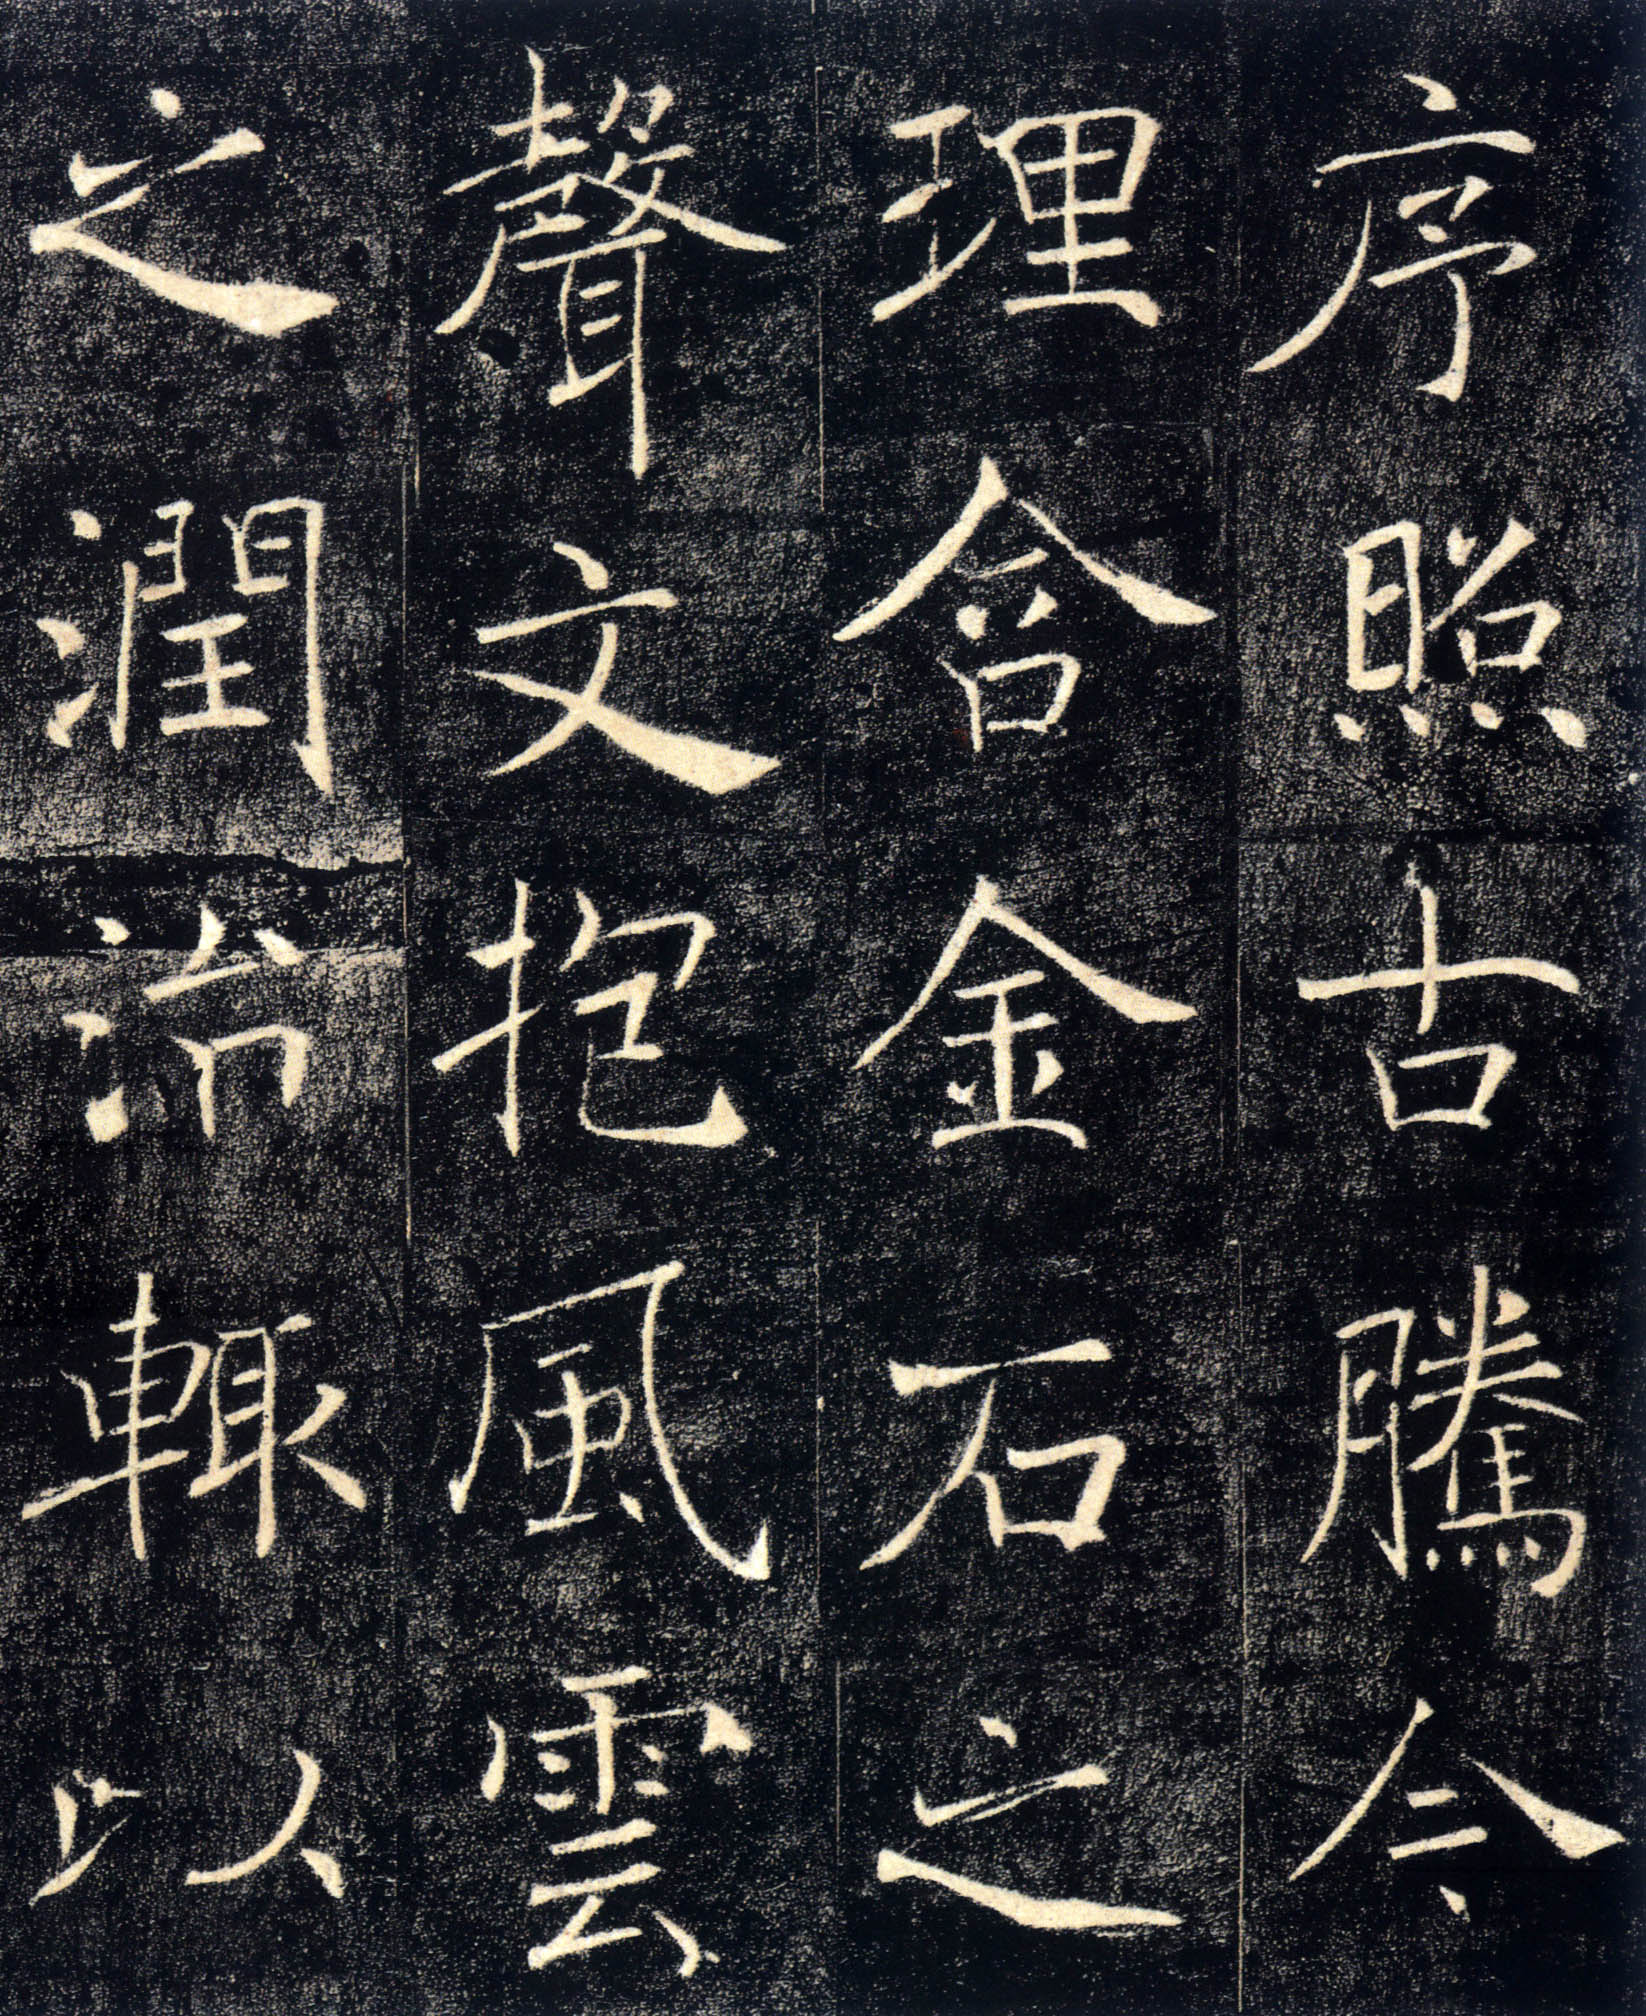 序照古騰今
理含金石之
聲文抱風雲
之潤治輒以